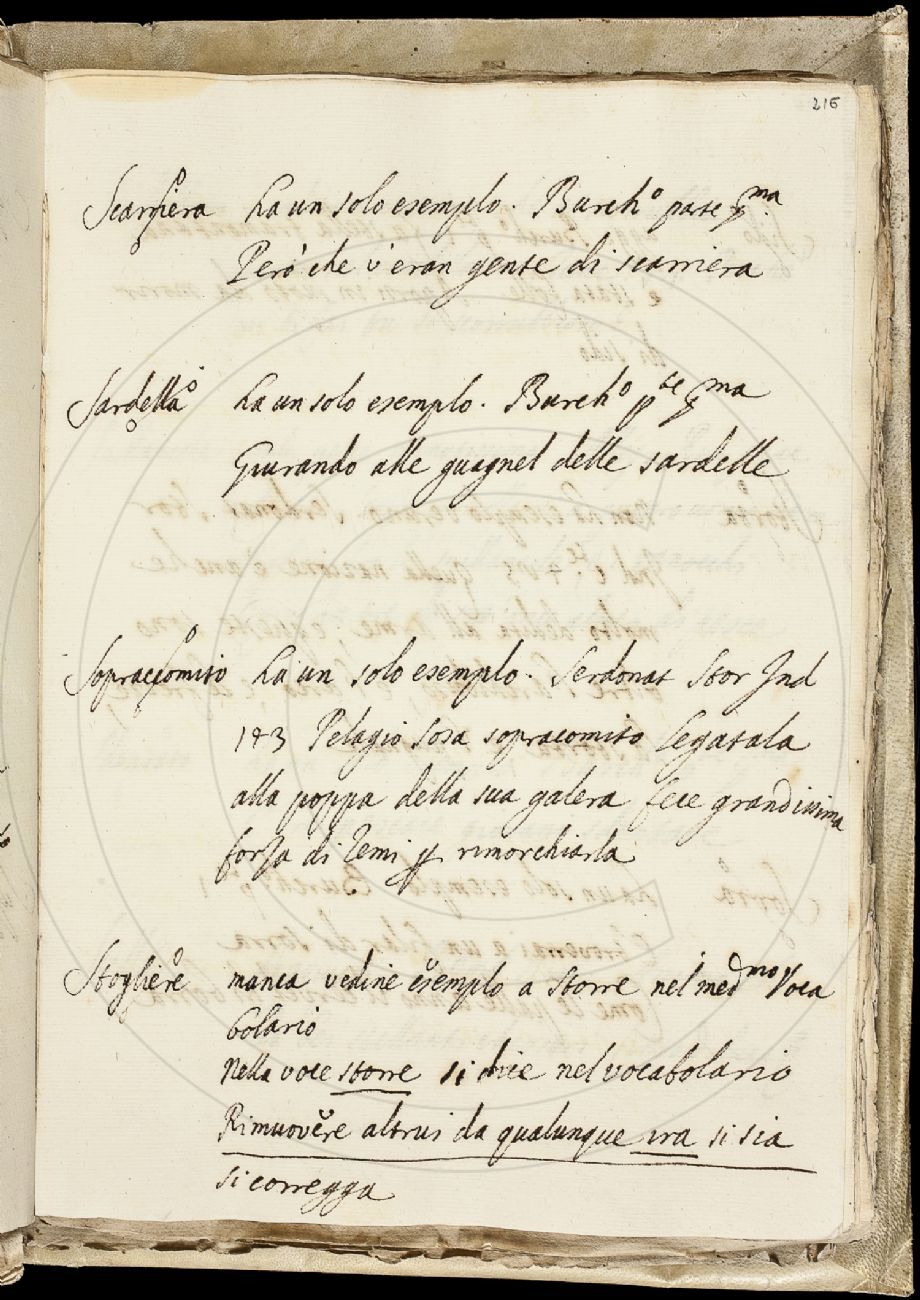 216
Scarriera ha un solo esemplo. Burch.º parte pma.
Però che v'eran gente di scarriera
Sardella ha un solo esemplo. Burch.º pte pma
Giurando alle guagnel delle sardelle
Sopraccomito ha un solo esemplo. Serdonat Stor Ind
Pelagio Sosa sopracomito legatala
alla poppa della sua galera fece grandissima
forza di remi p rimorchiarla
Stogliere manca vedine esemplo a Storre nel medmo Voca
bolario
Nella voce storre si dice nel vocabolario
Rimuovere altrui da qualunque ura si sia
si corregga